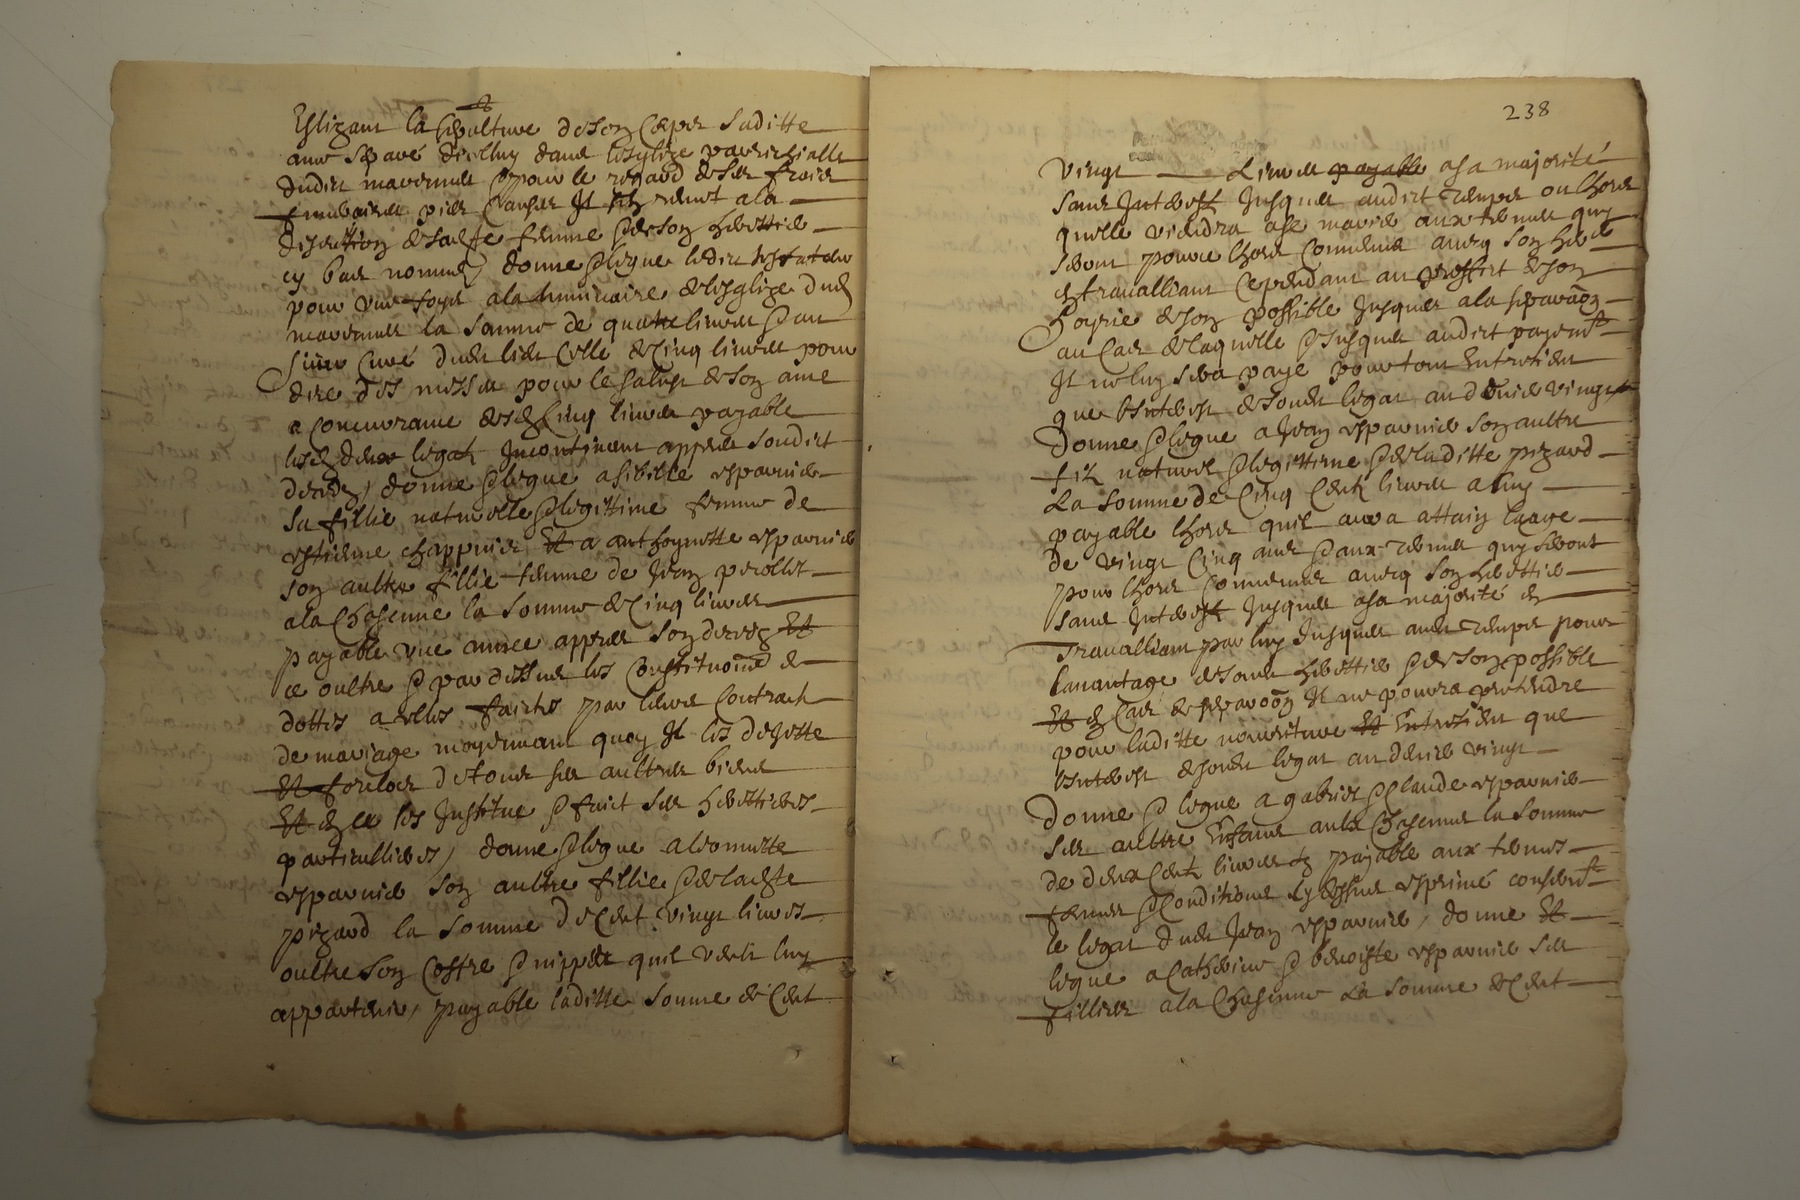 Eslizant la sepulture de son corps saditte
ame separé d'icelluy dans lesglize parrichialle
dudict mavernuet & pour le regard de ses fraix
funeraires pies causes Il sen remet a la
discrettion de sadte femme & de son herettier
cy bas nommez, donne & legue ledict testateur
pour une foys a la luminaire de lesglize dud
la somme de quatre livres & au
sieur curé dudit lieu celle de cinq livres pour
dire des messes pour le salut de son ame
a concurrance desd cinq livres payable
lesd deux legatz Incontinant appres sondict
deceds, donne & legue a sibille esparnier
sa fillie naturelle & legittime femme de
estienne chappuier Et a anthoynette esparnier
son aultre fillie femme de Jean perollet
a la chascune la somme de cinq livres
payable une annee appres son deceds Et
ce oultre & par dessus les constitutions de
dottes a elles faictes par leurs contracts
de mariage moyennant quoy Il les dejette
Et forclos de tous ses aultres biens
Et en ce les Institue & faict ses herettieres
particullieres, donne & legue a leonnette
esparnier son aultre fillie & de ladte
pizard la somme de cent vingt livres
oultre son coffre & nippes quil veult luy
appartenir, payable laditte somme de cent
238
vingt livres payable a sa majorité
sans Interest Jusques audict temps ou lhors
quelle viendra a se marier aux termes quy
seront pour lhors convenus avecq son herer
& travalliant cependant au proffict de son
hoyrie de son possible Jusques a la separaon
au cas de laquelle & Jusques audict payemt
Il ne luy sera payé pour tout entretient
que linterest de sondit legat au denier vingt
Donne & legue a Jean esparnier son aultre
filz naturel & legittime & de laditte pizard
La somme de cinq centz livres a luy
payable lhors quil aura attain laage
de vingt cinq ans & aux termes quy seront
pour lhors convenus avecq son herettier
sans Interest Jusques a sa majorité &
travalliant par luy Jusques audit temps pour
lavantage de sondit herettier & de son possible
Et en cas de separaon Il ne pourra pretendre
pour laditte nourriture Et Entretient que
linterest de sondit legat au denier vingt
Donne & legue a gabriel & claude esparnier
ses aultres Enfans aultx chascuns la somme
de deux centz livres payable aux termes
formes & conditions cy dessus exprimé concert
le legat dudit Jean esparnier, donne Et
legue a catherine & benoiste esparnier ses
fillies a la chascune La somme de cent